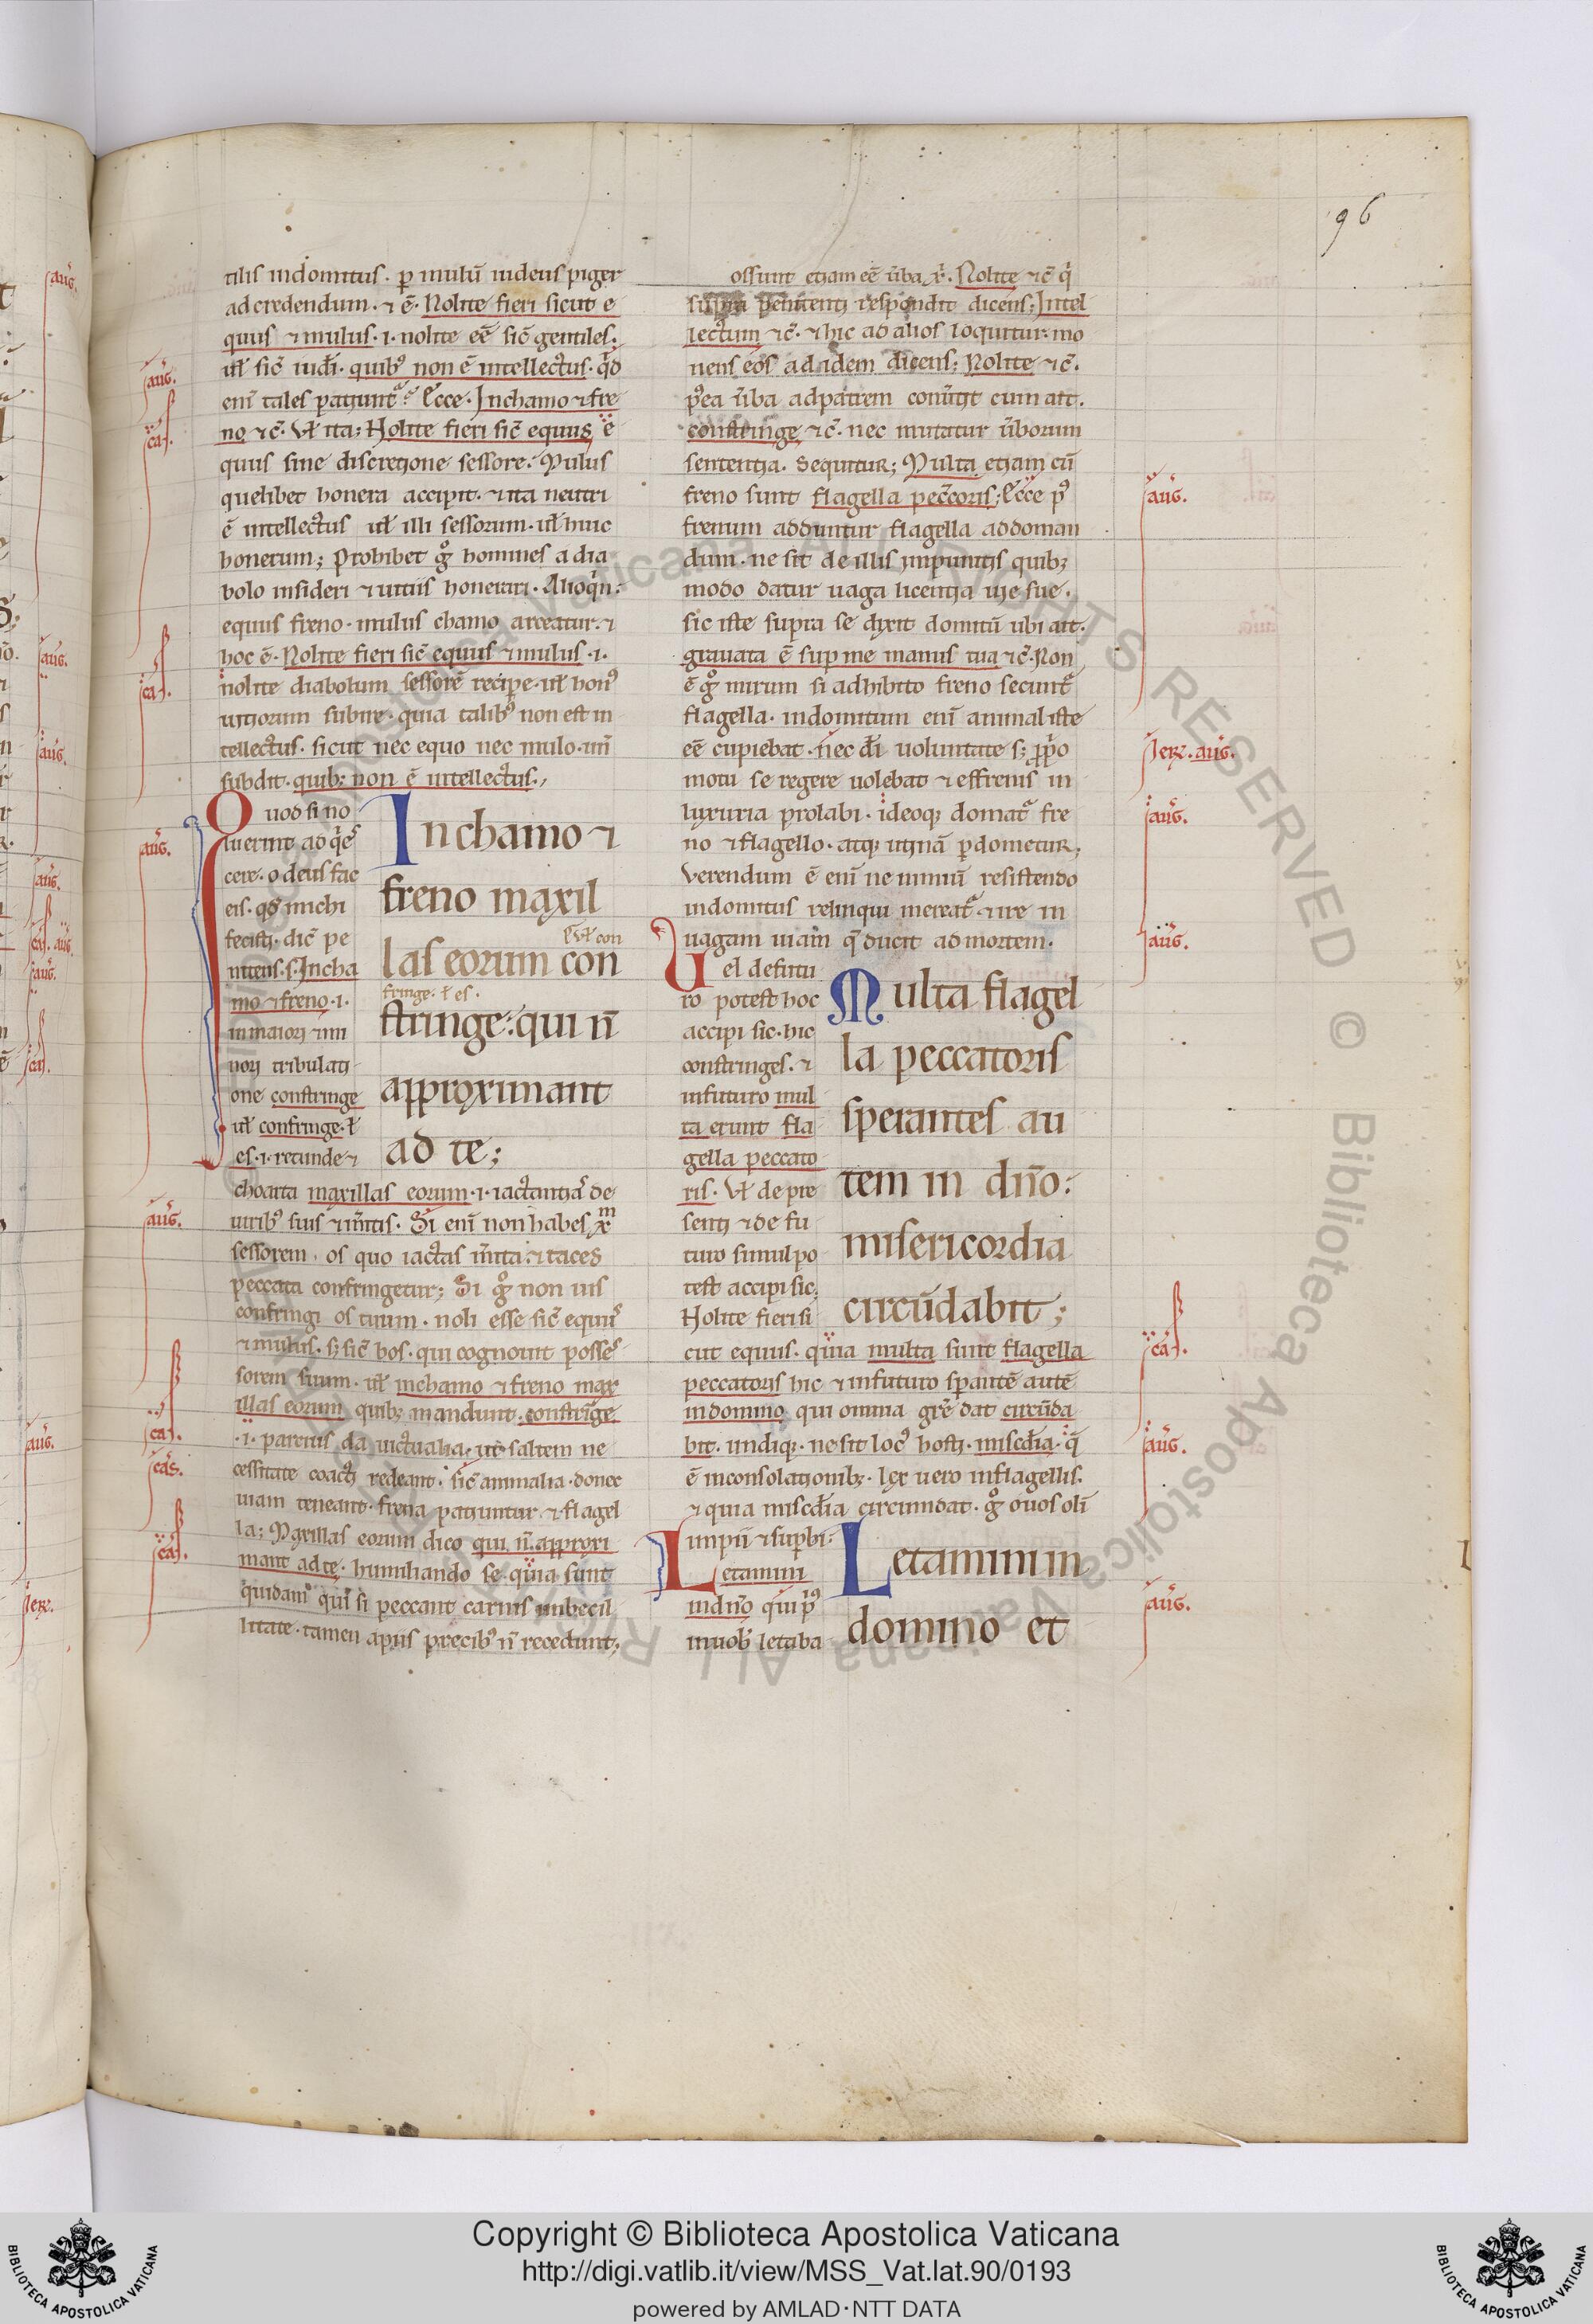 96
tilis indomitus. p mulū iudeus piger
ad credendum. ⁊ ē. Nolite fieri sicut e
quus ⁊ mulus. i. nolite eē sic̄ gentiles.
ul̄ sic̄ iud̄i. quibꝰ non ē intellectus. qd̄
eni tales patiunt̄? Ecce. In chamo ⁊ fre
no ⁊c̄. Vl̄ ita: Nolite fieri sic̄ equus e
quus sine discretione sessore. Mulus
quelibet honera accipit. ⁊ ita neutri
ē intellectus ul̄ illi sessorum. ul̄ huic
honerum; Prohibet gͦ homines a dia
bolo insideri ⁊ uitiis honerari. Alioqin.
equus freno. mulus chamo arceatur. ⁊
hoc ē. Nolite fieri sic̄ equus ⁊ mulus. i.
nolite diabolum sessorē recipe. ul̄ honꝰ
uitiorum subire. quia talibꝰ non est in
tellectus. sicut nec equo nec mulo. un̄
subdit. quibꝫ non ē intellectus.
Quod si no
luerint
cere. o deus fac
eis. qd̄ michi
fecisti. dic̄ pe
nitens. s. In cha
mo ⁊ freno. i.
in maiori ⁊ mi
nori tribulati
one constringe
ul̄ confringe. ł
es. i. retunde ⁊
In chamo ⁊
freno maxil
las eorum con
ł con
stringe: qui n̄
fringe. ł es.
approximant
ad te;
choarta maxillas eorum. i. iactantiā de
uiribꝰ suis ⁊ m̄itis. Si eni non habes xm
sessorem. os quo iactas m̄ita ⁊ taces
peccata confringetur; Si gͦ non uis
confringi os tuum. noli esse sic̄ equus
⁊ mulus. sꝫ sic̄ bos. qui cognouit posses
sorem suum. ul̄ in chamo ⁊ freno max
illas eorum quibꝫ mandunt. constringe
. i. parcius da uictualia. ut saltem ne
cessitate coacti redeant. sic̄ animalia. donec
uiam teneant. frena patiuntur ⁊ flagel
la; Maxillas eorum dico qui n̄ approxi
mant ad te. humiliando se. quia sunt
quidam qui si peccant carnis imbecil
litate. tamen a piis precibꝰ n̄ recedunt.
ossunt etiam eē ūba x̄. Nolite ⁊c̄ q
supra penitenti respondit dicens; Intel
lectum ⁊c̄. ⁊ hic ad alios loquitur. mo
nens eos ad idem dicens; Nolite ⁊c̄.
pꝰea ūba ad patrem conūtit cum ait.
constringe ⁊c̄. nec mutatur ūborum
sententia. Sequitur; Multa etiam cū
freno sunt flagella peccoris; Ecce pꝰ
frenum adduntur flagella ad doman
dum. ne sit de illis impunitis quibꝫ
modo datur uaga licentia uie sue.
sic iste supra se dixit domitū ubi ait.
grauata ē sup me manus tua ⁊c̄. Non
ē gͦ mirum si adhibito freno secunt̄
flagella. indomitum eni animal iste
eē cupiebat. nec di uoluntate sꝫ pprio
motu se regere uolebat ⁊ effrenis in
luxuria prolabi. ideoqꝫ domat̄ fre
no ⁊ flagello. atqꝫ utinā pdometur;
Verendum ē eni ne nimiū resistendo
indomitus relinqui mereat̄ ⁊ ire in
uagam uiam q̄ ducit ad mortem.
Vel de futu
ro potest hoc
accipi sic. hic
constringes. ⁊
in futuro mul
ta erunt fla
gella peccato
ris. Vl̄ de pre
senti ⁊ de fu
turo simul po
test accipi sic.
Nolite fieri si
Multa flagel
la peccatoris
sperantes au
tem in dn̄o:
misericordia
circūdabit;
cut equus. quia multa sunt flagella
peccatoris hic ⁊ in futuro sp̄antē autē
in domino qui omnia gr̄e dat circūda
bit. undiqꝫ. ne sit locꝰ hosti. miscd̄ia. q̄
ē in consolationibꝫ. lex uero in flagellis.
⁊ quia miscd̄ia circumdat. gͦ o uos oli
impii ⁊ supbi.
Letamini
in dn̄o qui pꝰ
in uob̄ letaba
Letamini in
domino et
aug.
cas.
cas.
aug.
aug.
cas.
cas.
cas.
aug.
Jer. aug.
aug.
aug.
cas.
aug.
aug.
Copyright © Biblioteca Apostolica Vaticana
http://digi.vatlib.it/view/MSS_Vat.lat.90/0193
powered by AMLAD·NTT DATA
BIBLIOTECA APOSTOLICA VATICANA
BIBLIOTECA APOSTOLICA VATICANA